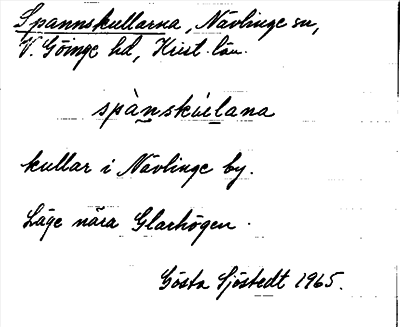 Spannskullarna, Nävlinge sn,
V. Göinge hd, Krist. län.
spànskùelana
kullar i Nävlinge by.
Läge nära Glarhögen.
Gösta Sjöstedt 1965.